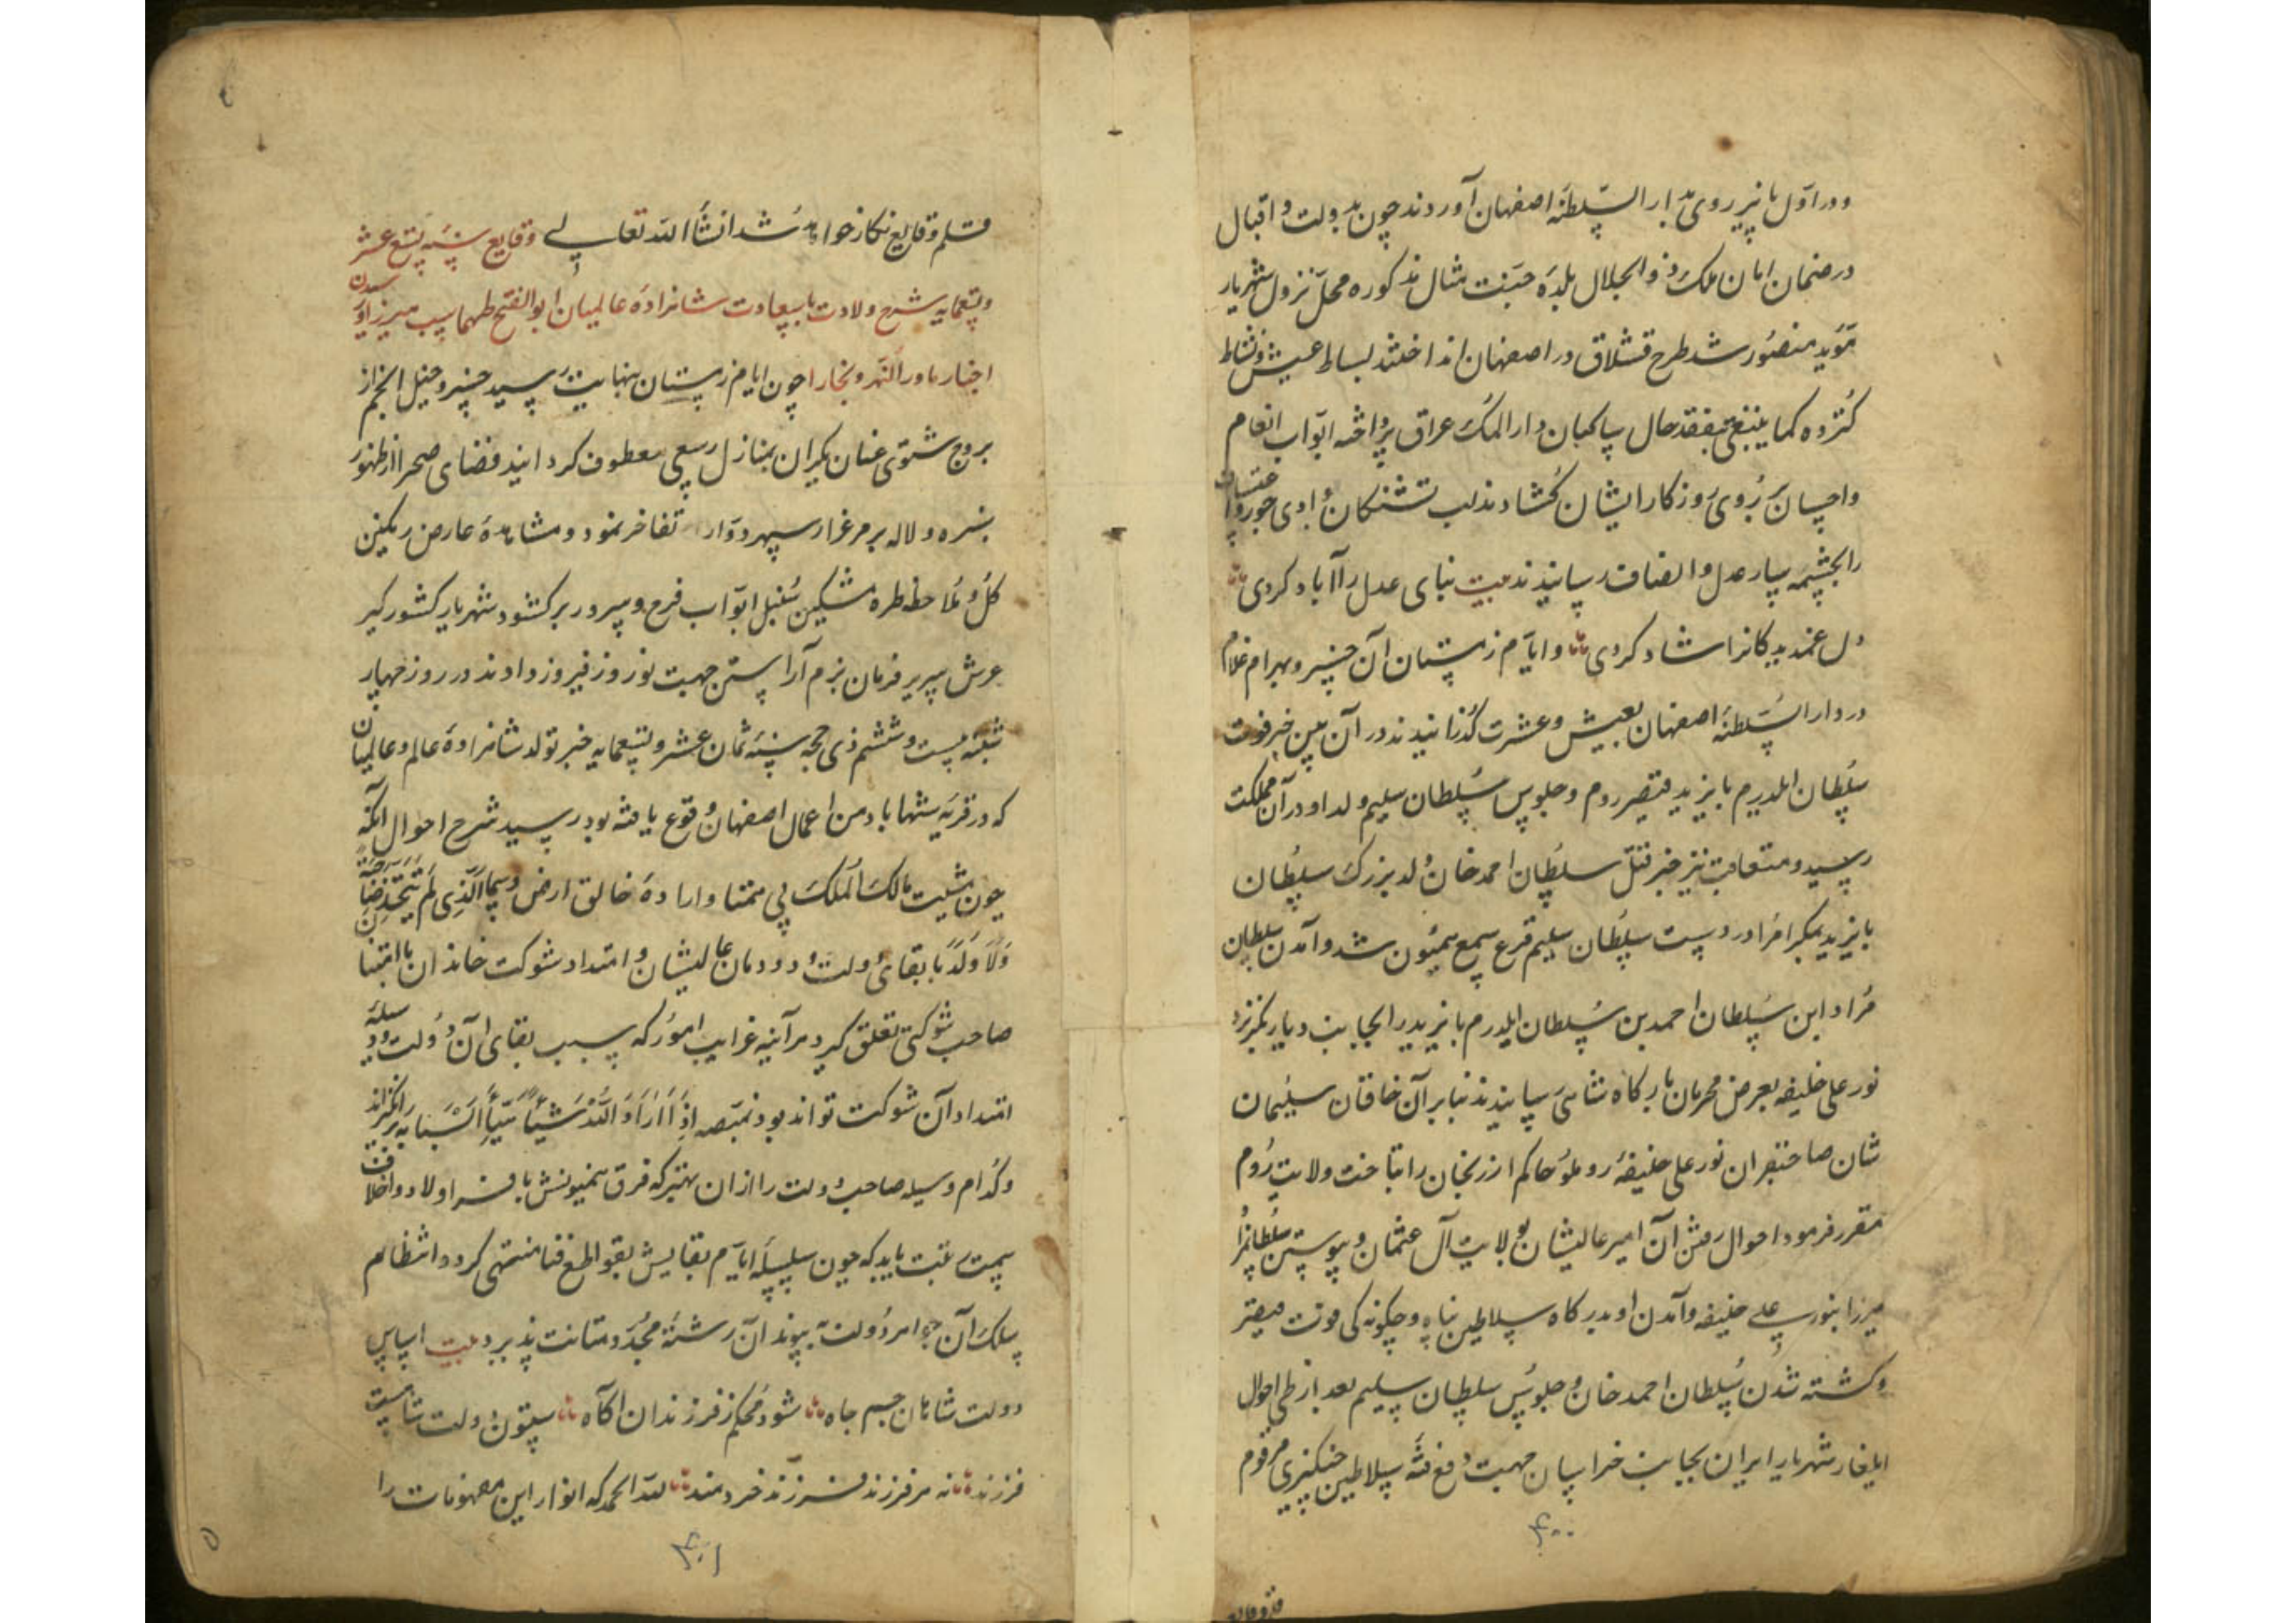 و در اول پائیز روی بدار السلطنه اصفهان آوردند چون بدولت و اقبال
در ضمان امان ملک ذو الجلال بلده جنت مثال مذکوره محل نزول شهریار
مؤید منصور شد طرح قشلاق در اصفهان انداختند بساط عیش و نشاط
گستروه کما ینبغی بتفقد حال ساکنان دار الملک عراق پرداخته ابواب انعام
و احسان بر روی روزکار ایشان کشادند لب تشنکان وادی جور و اعتساف
را بچشمه سار عدل و انصاف رسانیدند بیت بنای عدل را آباد کردی
دل غمدیدکانرا شاد کردی و ایام زمستان آن خسرو بهرام غلام
در دار السلطنه اصفهان بعیش و عشرت کذرانیدند در آن بین خبر فوت
سلطان ایلدرم بایزید قیصر روم و جلوس سلطان سلیم ولد او در آن مملکت
رسید و متعاقب نیز خبر قتل سلطان احمد خان ولد بزرک سلطان
بایزید بمکر امرا در دست سلطان سلیم قرع سمع همیون شد و آمدن سلطان
مراد ابن سلطان احمد بن سلطان ایلدرم بایزید را بجانب دیار بکر نزد
نور علی خلیفه بعرض محرمان بارکاه شاهی رسانیدند بنابر آن خاقان سلیمان
شان صاحبقران نور علی خلیفه روملو حاکم ارزنجان را بتاخت ولایت روم
مقرر فرمود احوال رفتن آن امیر عالیشان بولایت آل عثمان و پیوستن سلطانمراد
میرزا بنور علی خلیفه و آمدن او بدرکاه سلاطین پناه و چکونه کی فوت قیصر
و کشته شدن سلطان احمد خان و جلوس سلطان سلیم بعد از طی احوال
ایلغار شهریار ایران بجانب خراسان جهت دفع فتنه سلاطین چنکیزی مرقوم
۴۰۰
قلم وقایع نکار خواهد شد انشاء الله تعالی وقایع سنه تسع عشر
و تسعمایه شرح ولادت با سعادت شاهزاده عالمیان ابو الفتح طهماسب میرزا و
اخبار ماوراء النهر و بخارا چون ایام زمستان بنهایت رسید خسرو خیل انجم از
بروج شتوی عنان یکران بمنازل ربیعی معطوف کردانید فضای صحرا از ظهور
سبزه و لاله بر مرغزار سپهر دوار تفاخر نمود و مشاهده عارض رنکین
کل و ملاحظه طره مشکین سنبل ابواب فرح و سرور برکشود شهریار کشورکیر
عرش سریر فرمان بزم آراستن جهت نوروز فیروز دادند در روز چهار
شنبه بیست و ششم ذی حجه سنه ثمان عشر و تسعمایه خبر تولد شاهزاده عالم و عالمیان
که در قریه شهاباد من اعمال اصفهان وقوع یافته بود رسید شرح احوال آنکه
چون مشیت مالک الملک بی همتا و اراده خالق ارض و سما الذی لم یتخذ صاحبة
ولا ولدا بابقای دولت دودمان عالیشان و امتداد شوکت خاندان با اعتنا
صاحب شوکتی تعلق کیرد هر آینه غرایب امور که سبب بقای آن دولت و وسیله
امتداد آن شوکت تواند بود بمنصه اذا اراد الله شیئا هیأ اسبابه برانکیزاند
و کدام وسیله صاحب دولت را از آن بهتر که فرق همیونش بافسر اولاد و اخلاف
سمت رغبت یابد که چون سلسله ایام بقایش بقواطع فنا منتهی کردد انتظام
سلک آن جواهر دولت بپیوند آن رشته مجدد متانت پذیرد بیت اساس
دولت شاهان جم جاه شود محکم ز فرزندان آکاه ستون دولت شاهست
فرزند نه هر فرزند فرزند خردمند لله الحمد که انوار این مضمونات را
۴۰۱